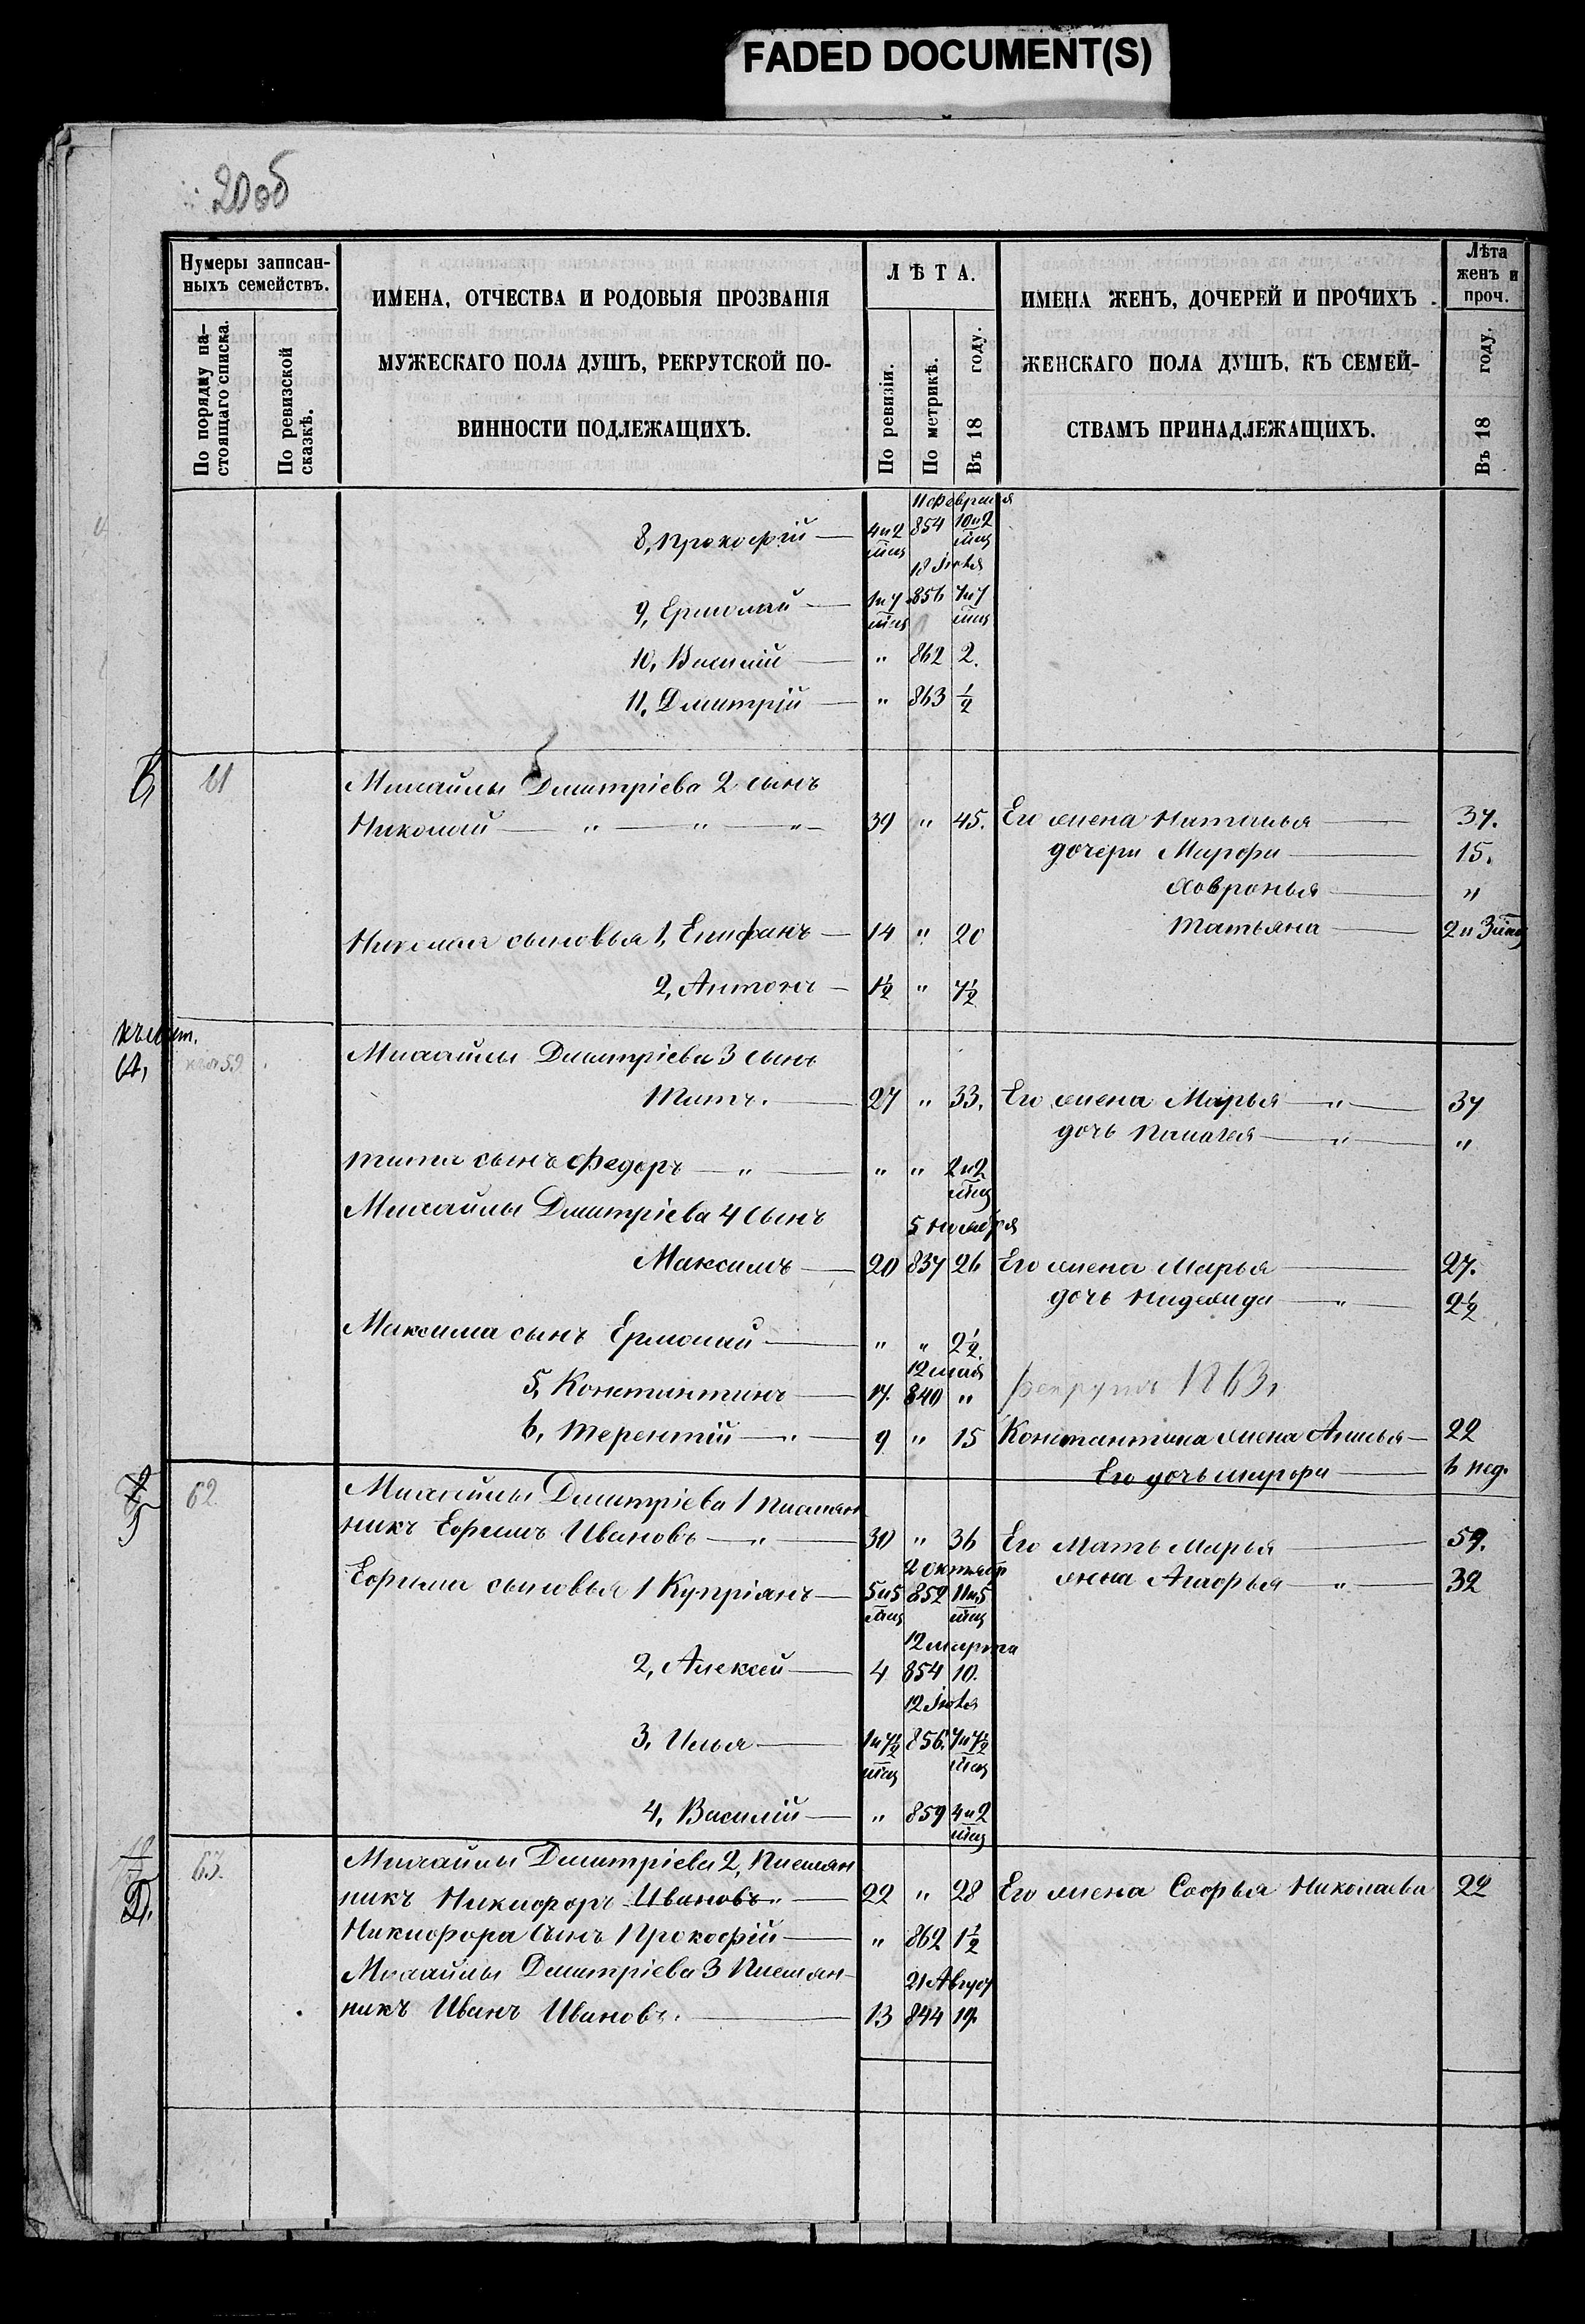 FADED DOCUMENT(S)
20об
Нумеры записан-
ныхъ семействъ.
По порядку на-
стоящаго списка.
По ревизской
сказкѣ.
ИМЕНА, ОТЧЕСТВА И РОДОВЫЯ ПРОЗВАНІЯ
МУЖЕСКАГО ПОЛА ДУШЪ, РЕКРУТСКОЙ ПО-
ВИННОСТИ ПОДЛЕЖАЩИХЪ.
ЛѢТА.
По ревизіи.
По метрикѣ.
Въ 18 году.
ИМЕНА ЖЕНЪ, ДОЧЕРЕЙ И ПРОЧИХЪ
ЖЕНСКАГО ПОЛА ДУШЪ, КЪ СЕМЕЙ-
СТВАМЪ ПРИНАДЛЕЖАЩИХЪ.
Лѣта
женъ и
проч.
Въ 18 году.
11 февраля
8, Прокофій 4 и 2 мѣц 854 10 и 2 мѣц
18 Іюля
9, Ермолай 1 и 7 мѣц 856 7 и 7 мѣц
10, Василій " 862 2.
11, Дмитрій " 863 1/2
61
Михайлы Дмитріева 2 сынъ
Николай " " " 39 " 45. Его жена Наталья 37.
дочери Марфа 15.
Ховронья "
Николая сыновья 1, Епифанъ 14 " 20 Татьяна 2 и 3 мѣц
2, Антонъ 1 1/2 " 7 1/2
Михайлы Дмитріева 3 сынъ
Титъ. 27 " 33. Его жена Марья " 37
дочь Палагея " "
Тита сынъ Федоръ " " " 2 и 2 мѣц
Михайлы Дмитріева 4 сынъ
5 ноября
Максимъ 20 837 26 Его жена Марья 27.
дочь Надежда " 2 1/2
Максима сынъ Ермолай " " 2 1/2.
12 мая
5, Константинъ 17. 840 " рекрутъ 1863г
6, Терентій " 9 " 15 Константина жена Анисья 22
Его дочь Марфа 6 нед.
62.
Михайлы Дмитріева 1 племян
никъ Ефимъ Ивановъ " 30 " 36 Его мать Марья 59.
2 октябр
Ефима сыновья 1 Купріянъ 5 и 5 мѣц 852 11 и 5 мѣц жена Агафья " 32
12 марта
2, Алексѣй 4 854 10.
12 Іюля
3, Илья 1 и 7 1/2 мѣц 856. 7 и 7 1/2 мѣц
4, Василій " 859 4 и 2 мѣц
63.
Михайлы Дмитріева 2, племян
никъ Никифоръ Ивановъ " 22 " 28 Его жена Софья Николаева 22
Никифора сынъ Прокофій " 862 1 1/2
Михайлы Дмитріева 3 племян-
21 Авгус
никъ Иванъ Ивановъ. 13 844 19.